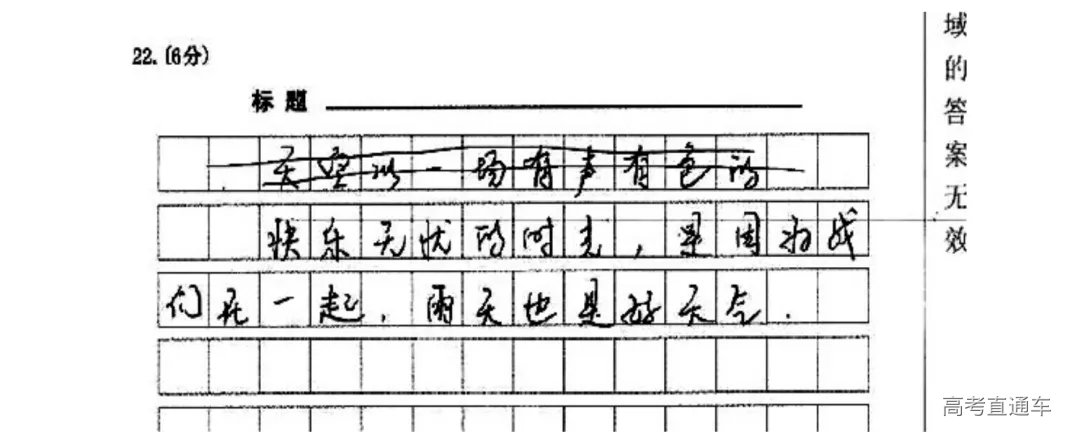 22.(6分)
标题
天空以一场有声有色的
快乐无忧的时光，是因为我
们在一起，雨天也是好天气.
域的答案无效
高考直通车